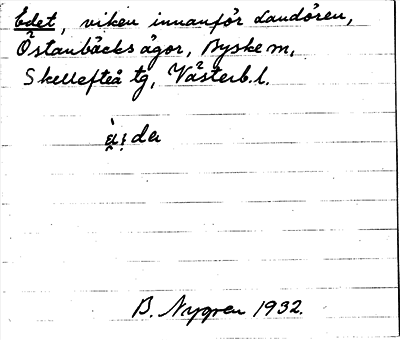 Edet, viken innanför Landören,
Östanbäcks ägor, Byske m,
Skellefteå tg, Västerb.l.
B. Nygren 1932.